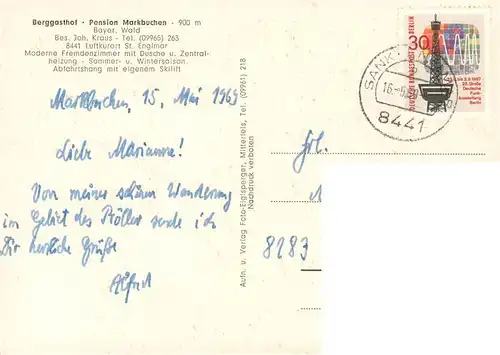 Berggasthof · Pension Markbuchen · 900 m
Bayer. Wald
Bes. Joh. Kraus - Tel. (09965) 263
8441 Luftkurort St. Englmar
Moderne Fremdenzimmer mit Dusche u. Zentral-
heizung - Sommer- u. Wintersaison.
Abfahrtshang mit eigenem Skilift
Markbuchen, 15. Mai 1969
Liebe Marianne!
Von meiner schönen Wanderung
im Gebiet des Pröller sende ich
Dir herzliche Grüße
Alfred
Aufn. u. Verlag Foto-Eiglsperger, Mitterfels, Tel. (09961) 218
Nachdruck verboten
Frl.
8183
30
DEUTSCHE BUNDESPOST BERLIN
1967
25. Große
Deutsche
Funk-
Ausstellung
Berlin
SANKT
16.-5.69
8441